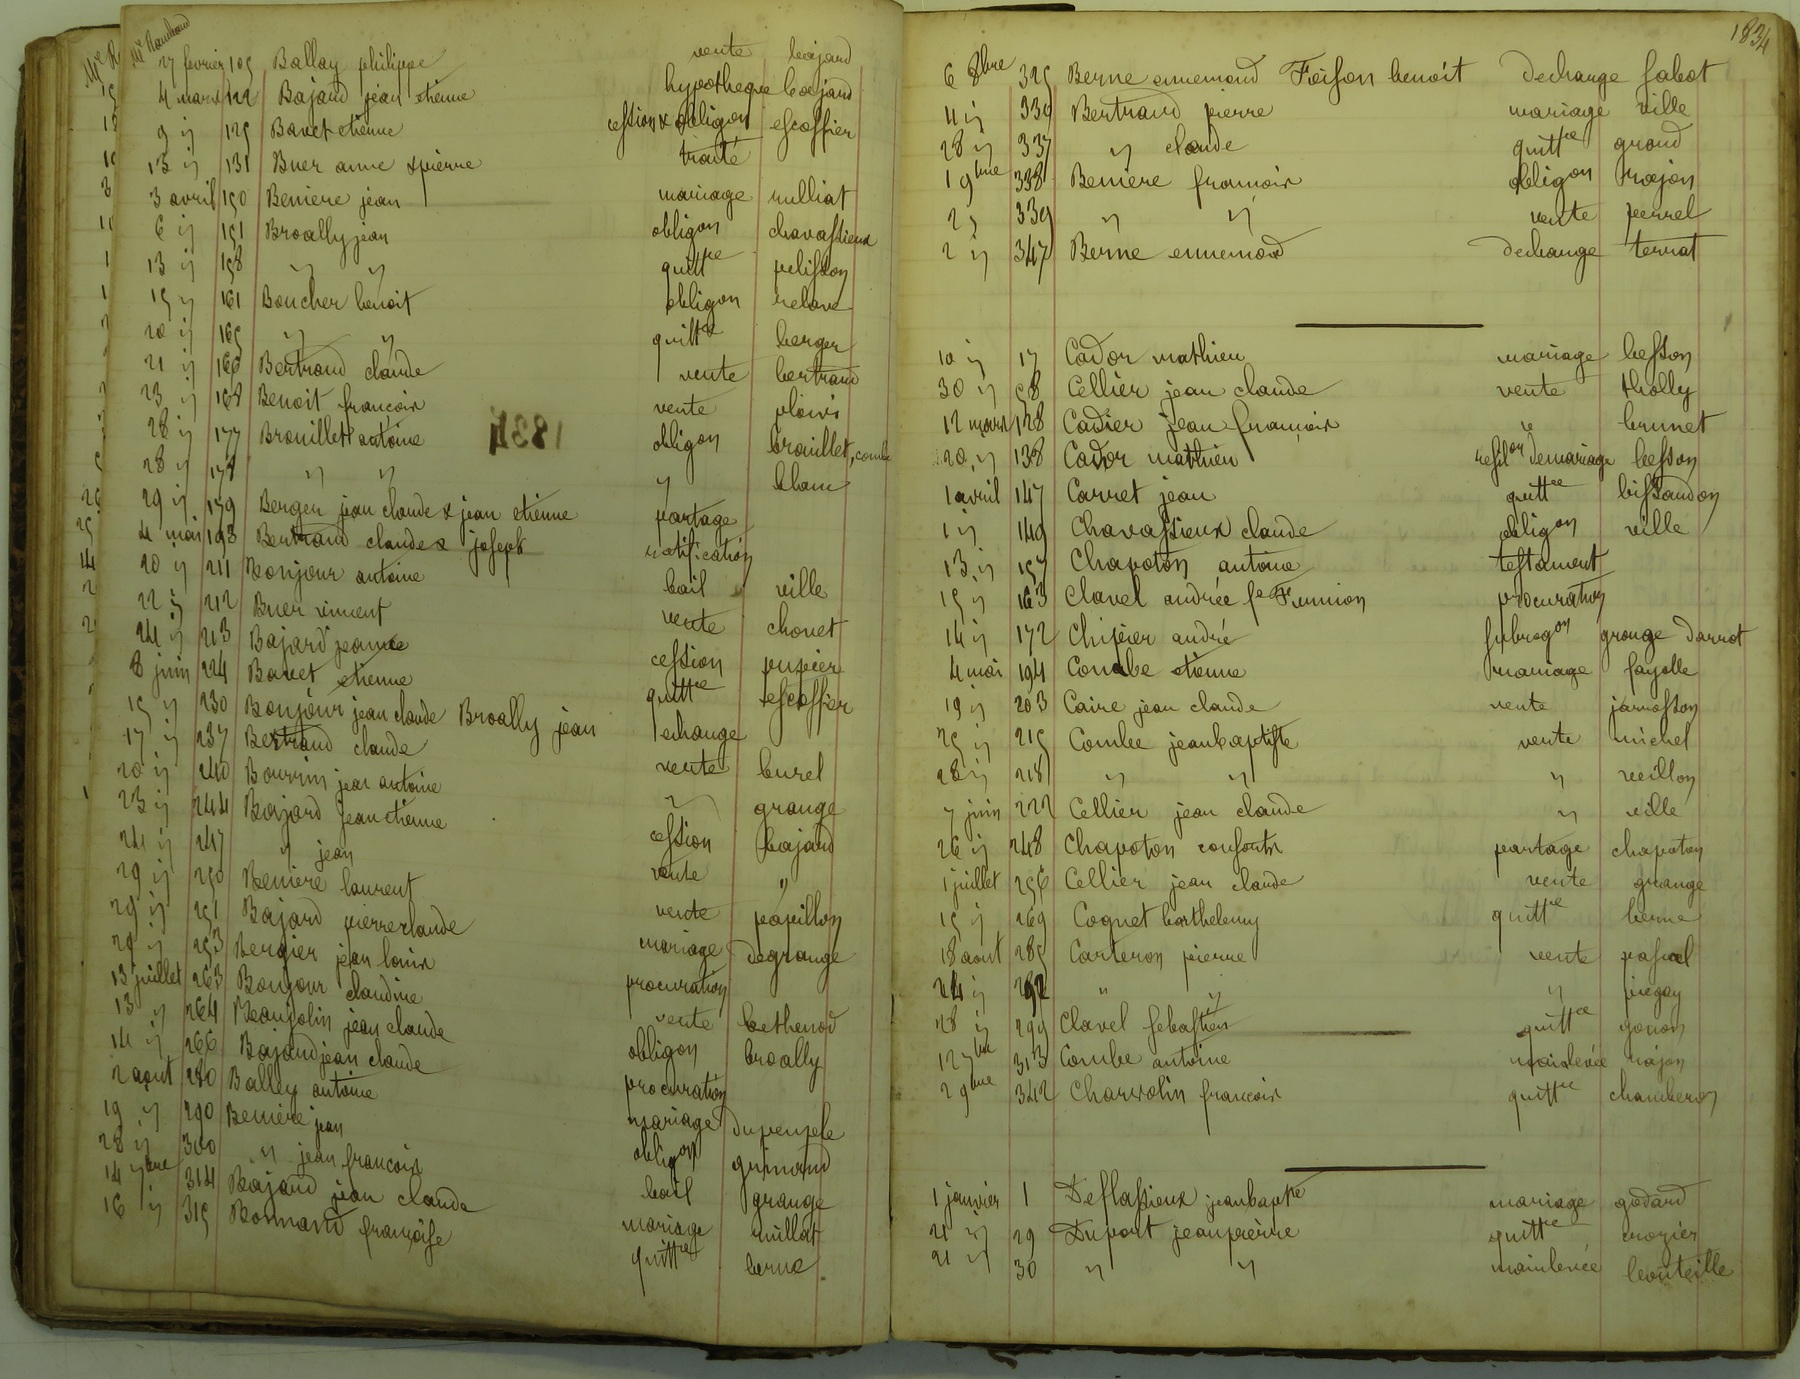 27 fevrier 105 Ballay philippe vente bajard
4 mars 122 Bajard jean etienne hypotheque bajard
9 ij 125 Bavet etienne cession & obligon escoffier
13 ij 131 Buer anne & pierre traité
3 avril 150 Beniere jean mariage rulliat
6 ij 151 Broally jean obligon chavassieux
13 ij 158 ij ij quittce pelisson
15 ij 161 Boucher benoit obligon relave
20 ij 165 ij ij quittce berger
21 ij 166 Bertrand claude vente bertrand
23 ij 168 Benoit francois vente
28 ij 177 Brouillet antoine obligon brouillet, combe
28 ij 178 ij ij ij
29 ij 179 Berger jean claude & jean etienne partage
4 mai 193 Bertrand claude & joseph ratification
20 ij 211 Bonjour antoine bail ville
22 ij 212 Buer vincent vente chovet
24 ij 213 Bajard jeanne cession pupier
8 juin 224 Bavet etienne quittce escoffier
15 ij 230 Bonjour jean claude Broally jean echange
17 ij 237 Bertrand claude vente burel
20 ij 240 Bourrin jean antoine ij grange
23 ij 244 Bajard jean etienne cession bajard
24 ij 247 ij jean vente "
29 ij 250 Beniere laurent vente papillon
29 ij 251 Bajard pierre claude mariage degrange
29 ij 253 Bergier jean louis procuration
13 juillet 263 Bonjour claudine vente bethenod
13 ij 264 Beaujolin jean claude obligon broally
14 ij 266 Bajard jean claude procuration
2 aout 280 Balley antoine mariage
19 ij 290 Beniere jean obligon guimard
28 ij 300 ij jean francois bail grange
14 7bre 314 Bajard jean claude mariage rullat
16 ij 315 Bonnard françoise quittce berne
1834
6 8bre 325 Berne ennemond Foison benoit decharge sabot
11 ij 330 Bertrand pierre mariage ville
28 ij 337 ij claude quittce grand
1 9bre 338 Beniere francois obligon rajon
2 ij 339 ij ij vente perrel
2 ij 347 Berne ennemond decharge ternat
10 ij 17 Cador mathieu mariage besson
30 ij 58 Cellier jean claude vente tholly
12 mars 128 Cadier jean francois brunet
20 ij 138 Cador mathieu resilon de mariage besson
1 avril 147 Carret jean quittce bissardon
1 ij 149 Chavassieux claude obligon ville
13 ij 157 Chapoton antoine testament
15 ij 163 Clavel andrée fe procuration
14 ij 172 Chipier andré subrogon grange Darrot
4 mai 194 Combe etienne mariage fayolle
19 ij 203 Caire jean claude vente jarrosson
25 ij 215 Combe jean baptiste vente michel
28 ij 218 ij ij ij veillon
7 juin 222 Cellier jean claude ij ville
26 ij 248 Chapoton consorts partage chapoton
1 juillet 256 Cellier jean claude vente grange
15 ij 269 Cognet barthelemy quittce berne
18 aout 289 Carteron pierre vente pascal
24 ij 292 " ij ij piegay
28 ij 299 Clavel sebastien quittce gonon
12 7bre 313 Combe antoine mainlevée rajon
2 9bre 342 Charvolin francois quittce chamberon
1 janvier 1 Deflassieux jean bapte mariage godard
21 ij 29 Duport jean pierre quittce crozier
21 ij 30 ij ij mainlevée bouteille